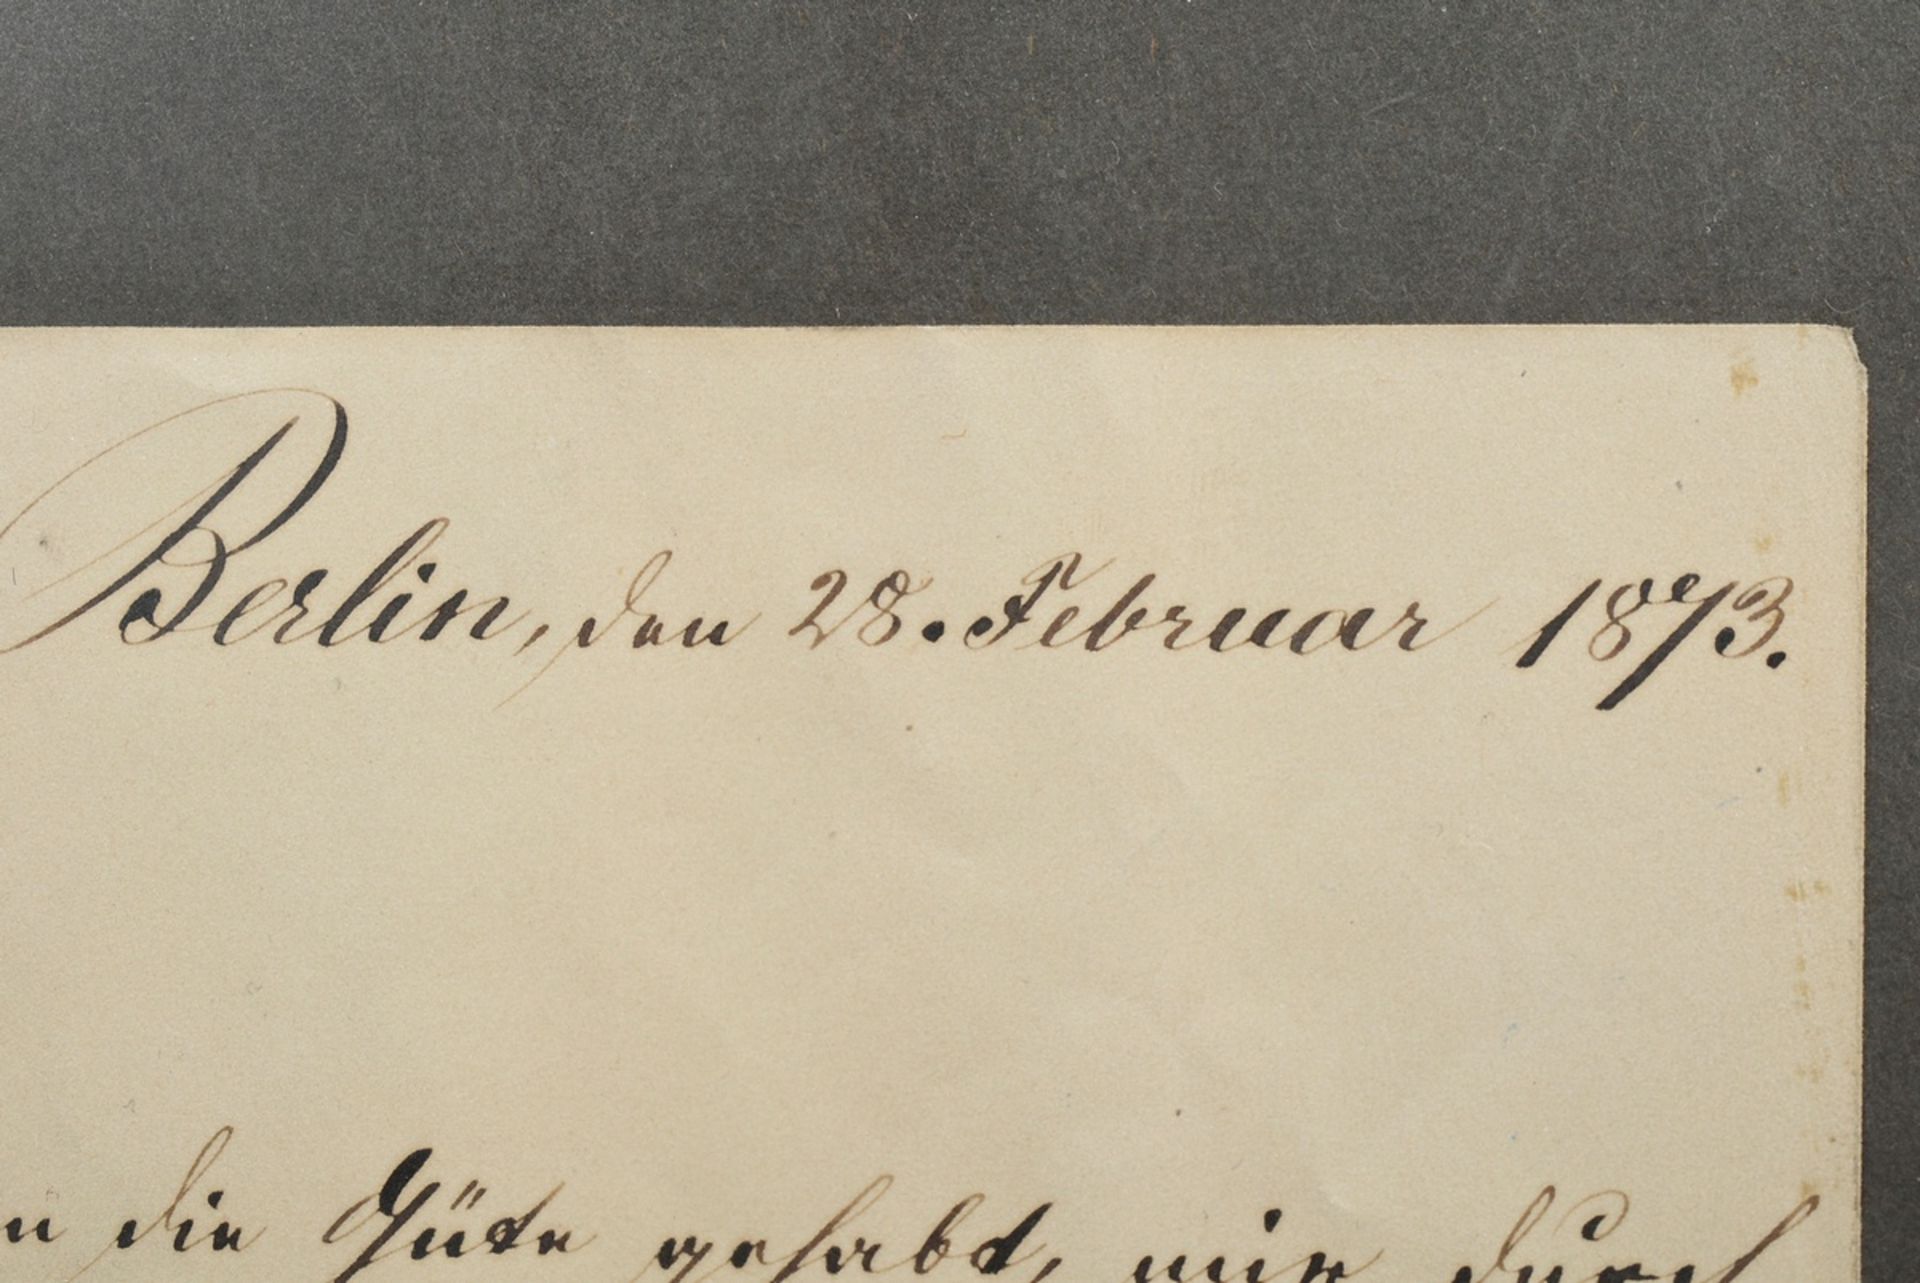 Berlin, den 28. Februar 1873.
n die Güte gehabt, mir durch